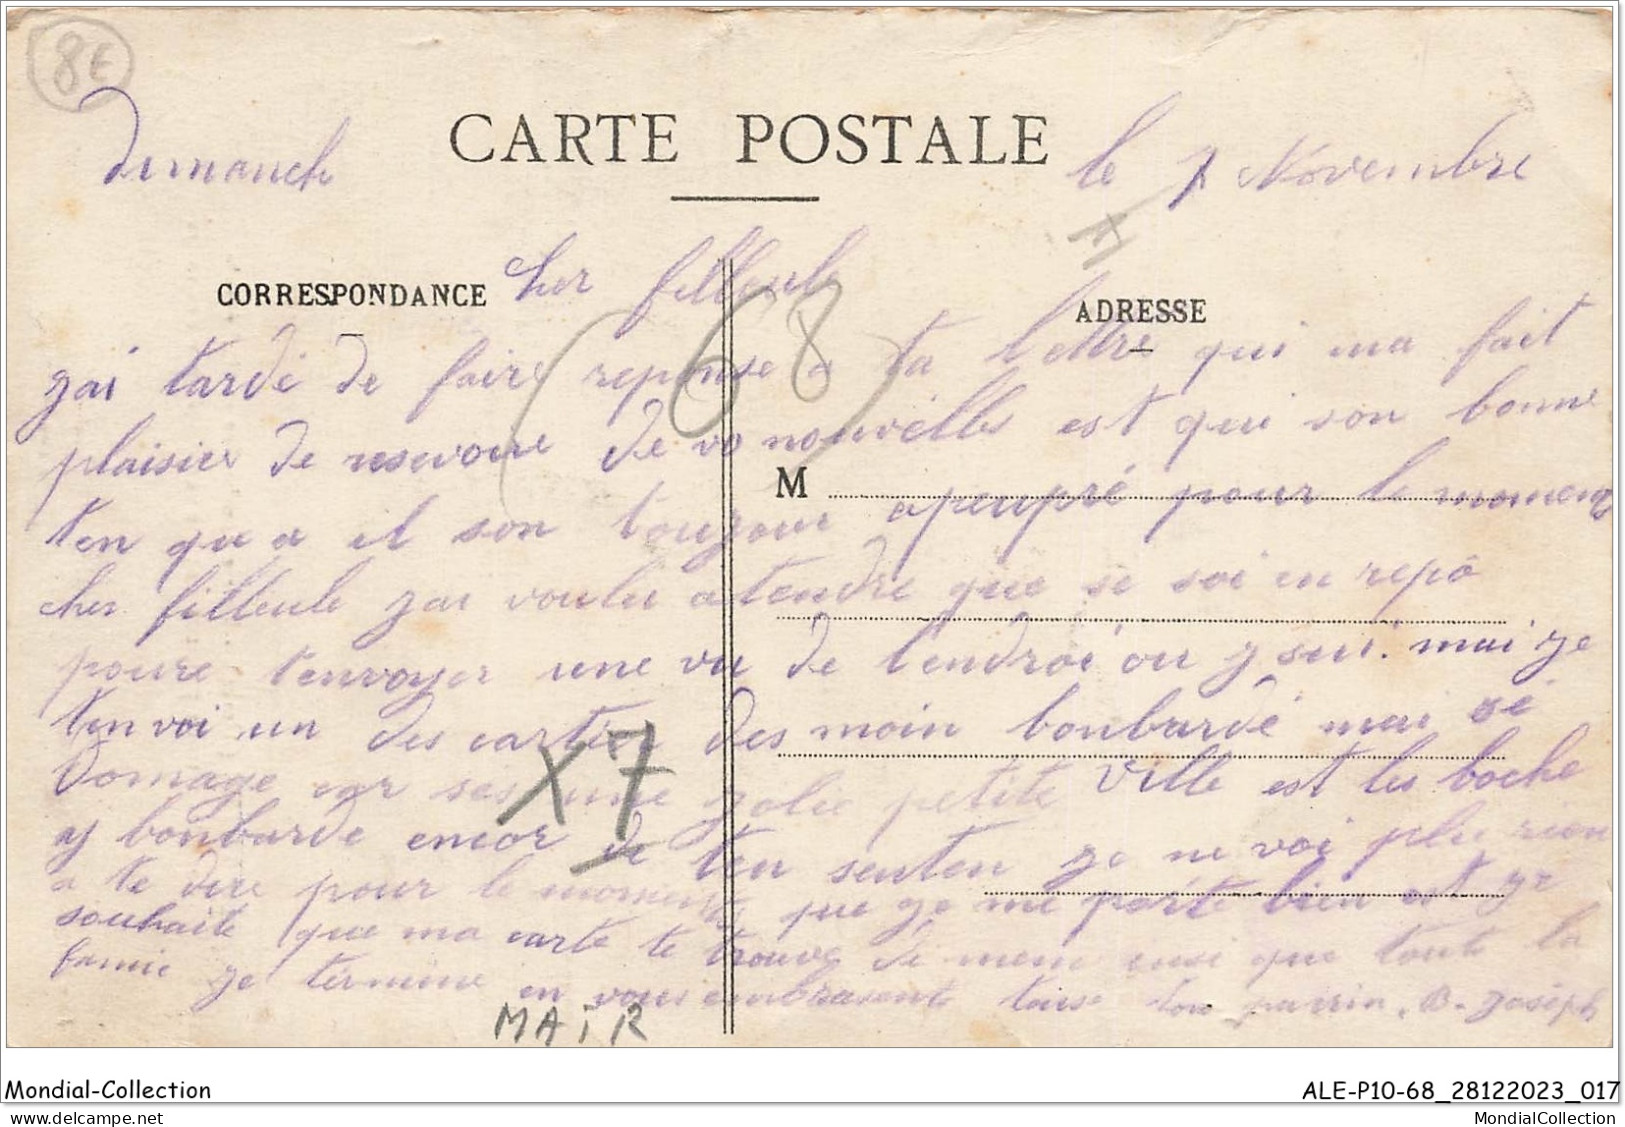 8E
Dimanch
CARTE POSTALE
le 7 Novembre
CORRESPONDANCE
cher filleule
(68)
ADRESSE
jai tardé de faire reponse a ta lettre qui ma fait
plaisier de resevoire de vo nouvelles est qui son bonne
M
ten qu a il son toujour apeupré pour le moment
cher filleule jai voulu atendre que je soi en repô
poure tenvoyer une vu de lendroi ou j sui. mai je
tenvoi un des cartier des moin bonbardé mai sé
Domage car ses une jolie petite ville est les boche
y bonbarde encor de ten senten je ne voi plu rien
X7
a te dire pour le moment que je me porte bien est je
souhaite que ma carte te trouve de meme insi que toute la
famie je termine en vous embrasent tous ton parrin. B. Joseph
MAIR
Mondial-Collection
ALE-P10-68_28122023_017
www.mondialcollection.net
MondialCollection